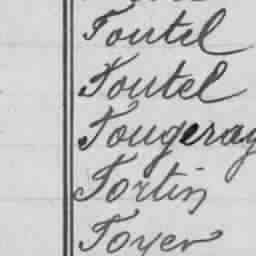 Foutel
Foutel
Fougeray
Fortin
Foyer